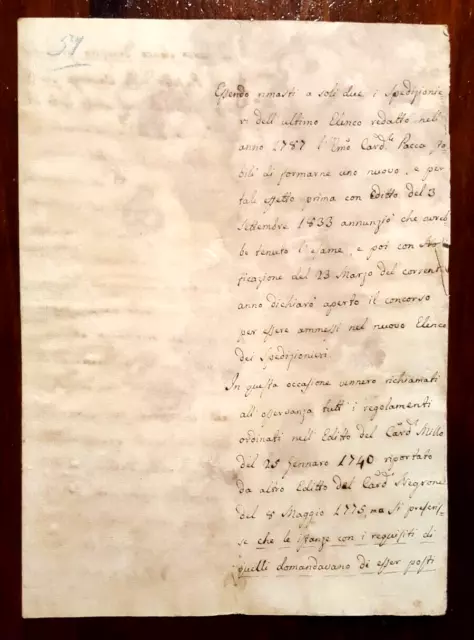 57
Essendo rimasti a soli due i Spedizionie
ri dell'ultimo Elenco redatto nell'
anno 1787 l'Emo Card.le Pacca sta
bilì di formarne uno nuovo, e per
tali effetto prima con Editto del 3
Settembre 1833 annunziò che avreb
be tenuto l'esame, e poi con No
tificazione del 23 Marzo del corrente
anno dichiarò aperto il concorso
per essere ammessi nel nuovo Elenco
dei Spedizionieri.
In questa occasione vennero richiamati
all'osservanza tutt'i regolamenti
ordinati nell'Editto del Card. Millo
del 25 Gennaro 1740 riportato
da altro Editto del Card. Negrone
del 8 Maggio 1775, ma si prescris-
se che le istanze con i requisiti di
quelli domandavano di esser posti